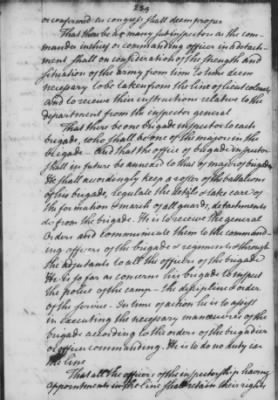 239
or confirmed as congress shall deem proper
That there be as many sub inspectors as the com-
mander in chief or commanding officer in a detach-
ment shall on consideration of the strength and
situation of the army from time to time deem
necessary to be taken from the line of lieut colonels
And to receive their instructions relative to the
department from the inspector general
That there be one brigade inspector to each
brigade, who shall be one of the majors in the
brigade. And that the office of brigade inspector
shall in future be annexed to that of major of brigade
He shall accordingly keep a roster of the battalions
of his brigade, regulate the details & take care of
the formation & march of all guards, detachments
&c from the brigade. He is to receive the general
Orders and communicate them to the command-
ing officers of the brigade & regiments & through
the adjutants to all the officers of the brigade
He is so far as concerns his brigade to inspect
the police of the camp - the discipline & order
of the service. In time of action he is to assist
in executing the necessary manoeuvres of the
brigade according to the orders of the brigadier
or officer commanding. He is to do no duty in
the line
That all the officers of the inspectorship having
appointments in the line shall retain their rights